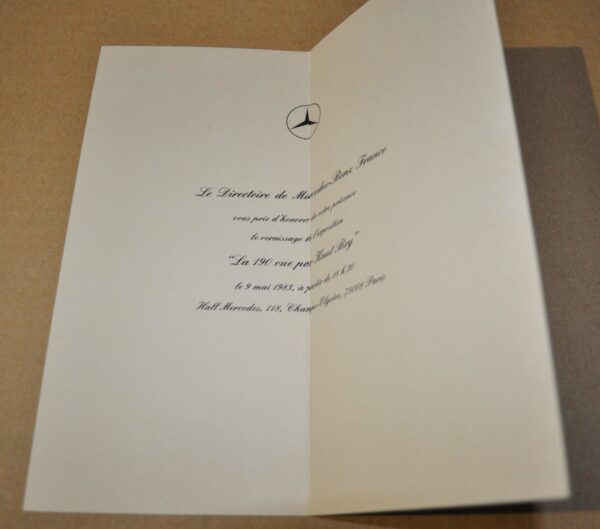 Le Directoire de Mercedes-Benz France
vous prie d'honorer de votre présence
le vernissage de l'exposition
"La 190 vue par Knut Bry"
le 9 mai 1983, à partir de 18 h 30
Hall Mercedes, 118, Champs-Elysées, 75008 Paris